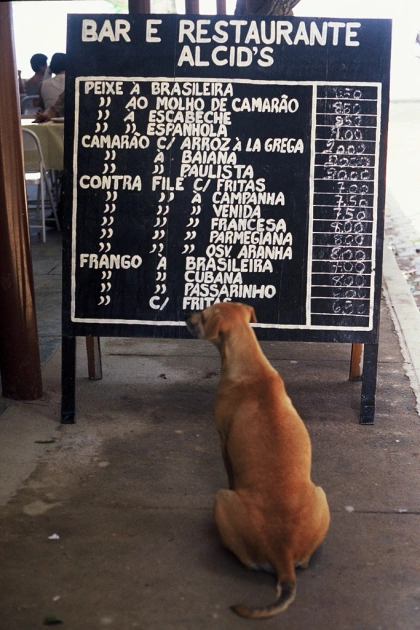 BAR E RESTAURANTE
ALCID'S
PEIXE À BRASILEIRA
" AO MOLHO DE CAMARÃO
" À ESCABECHE
" " ESPANHOLA
CAMARÃO C/ ARROZ À LA GREGA
" À BAIANA
" " PAULISTA
CONTRA FILÉ C/ FRITAS
" " À CAMPANHA
" " " VENIDA
" " " FRANCESA
" " " PARMEGIANA
" " " OSV. ARANHA
FRANGO À BRASILEIRA
" " CUBANA
" " PASSARINHO
" C/ FRITAS